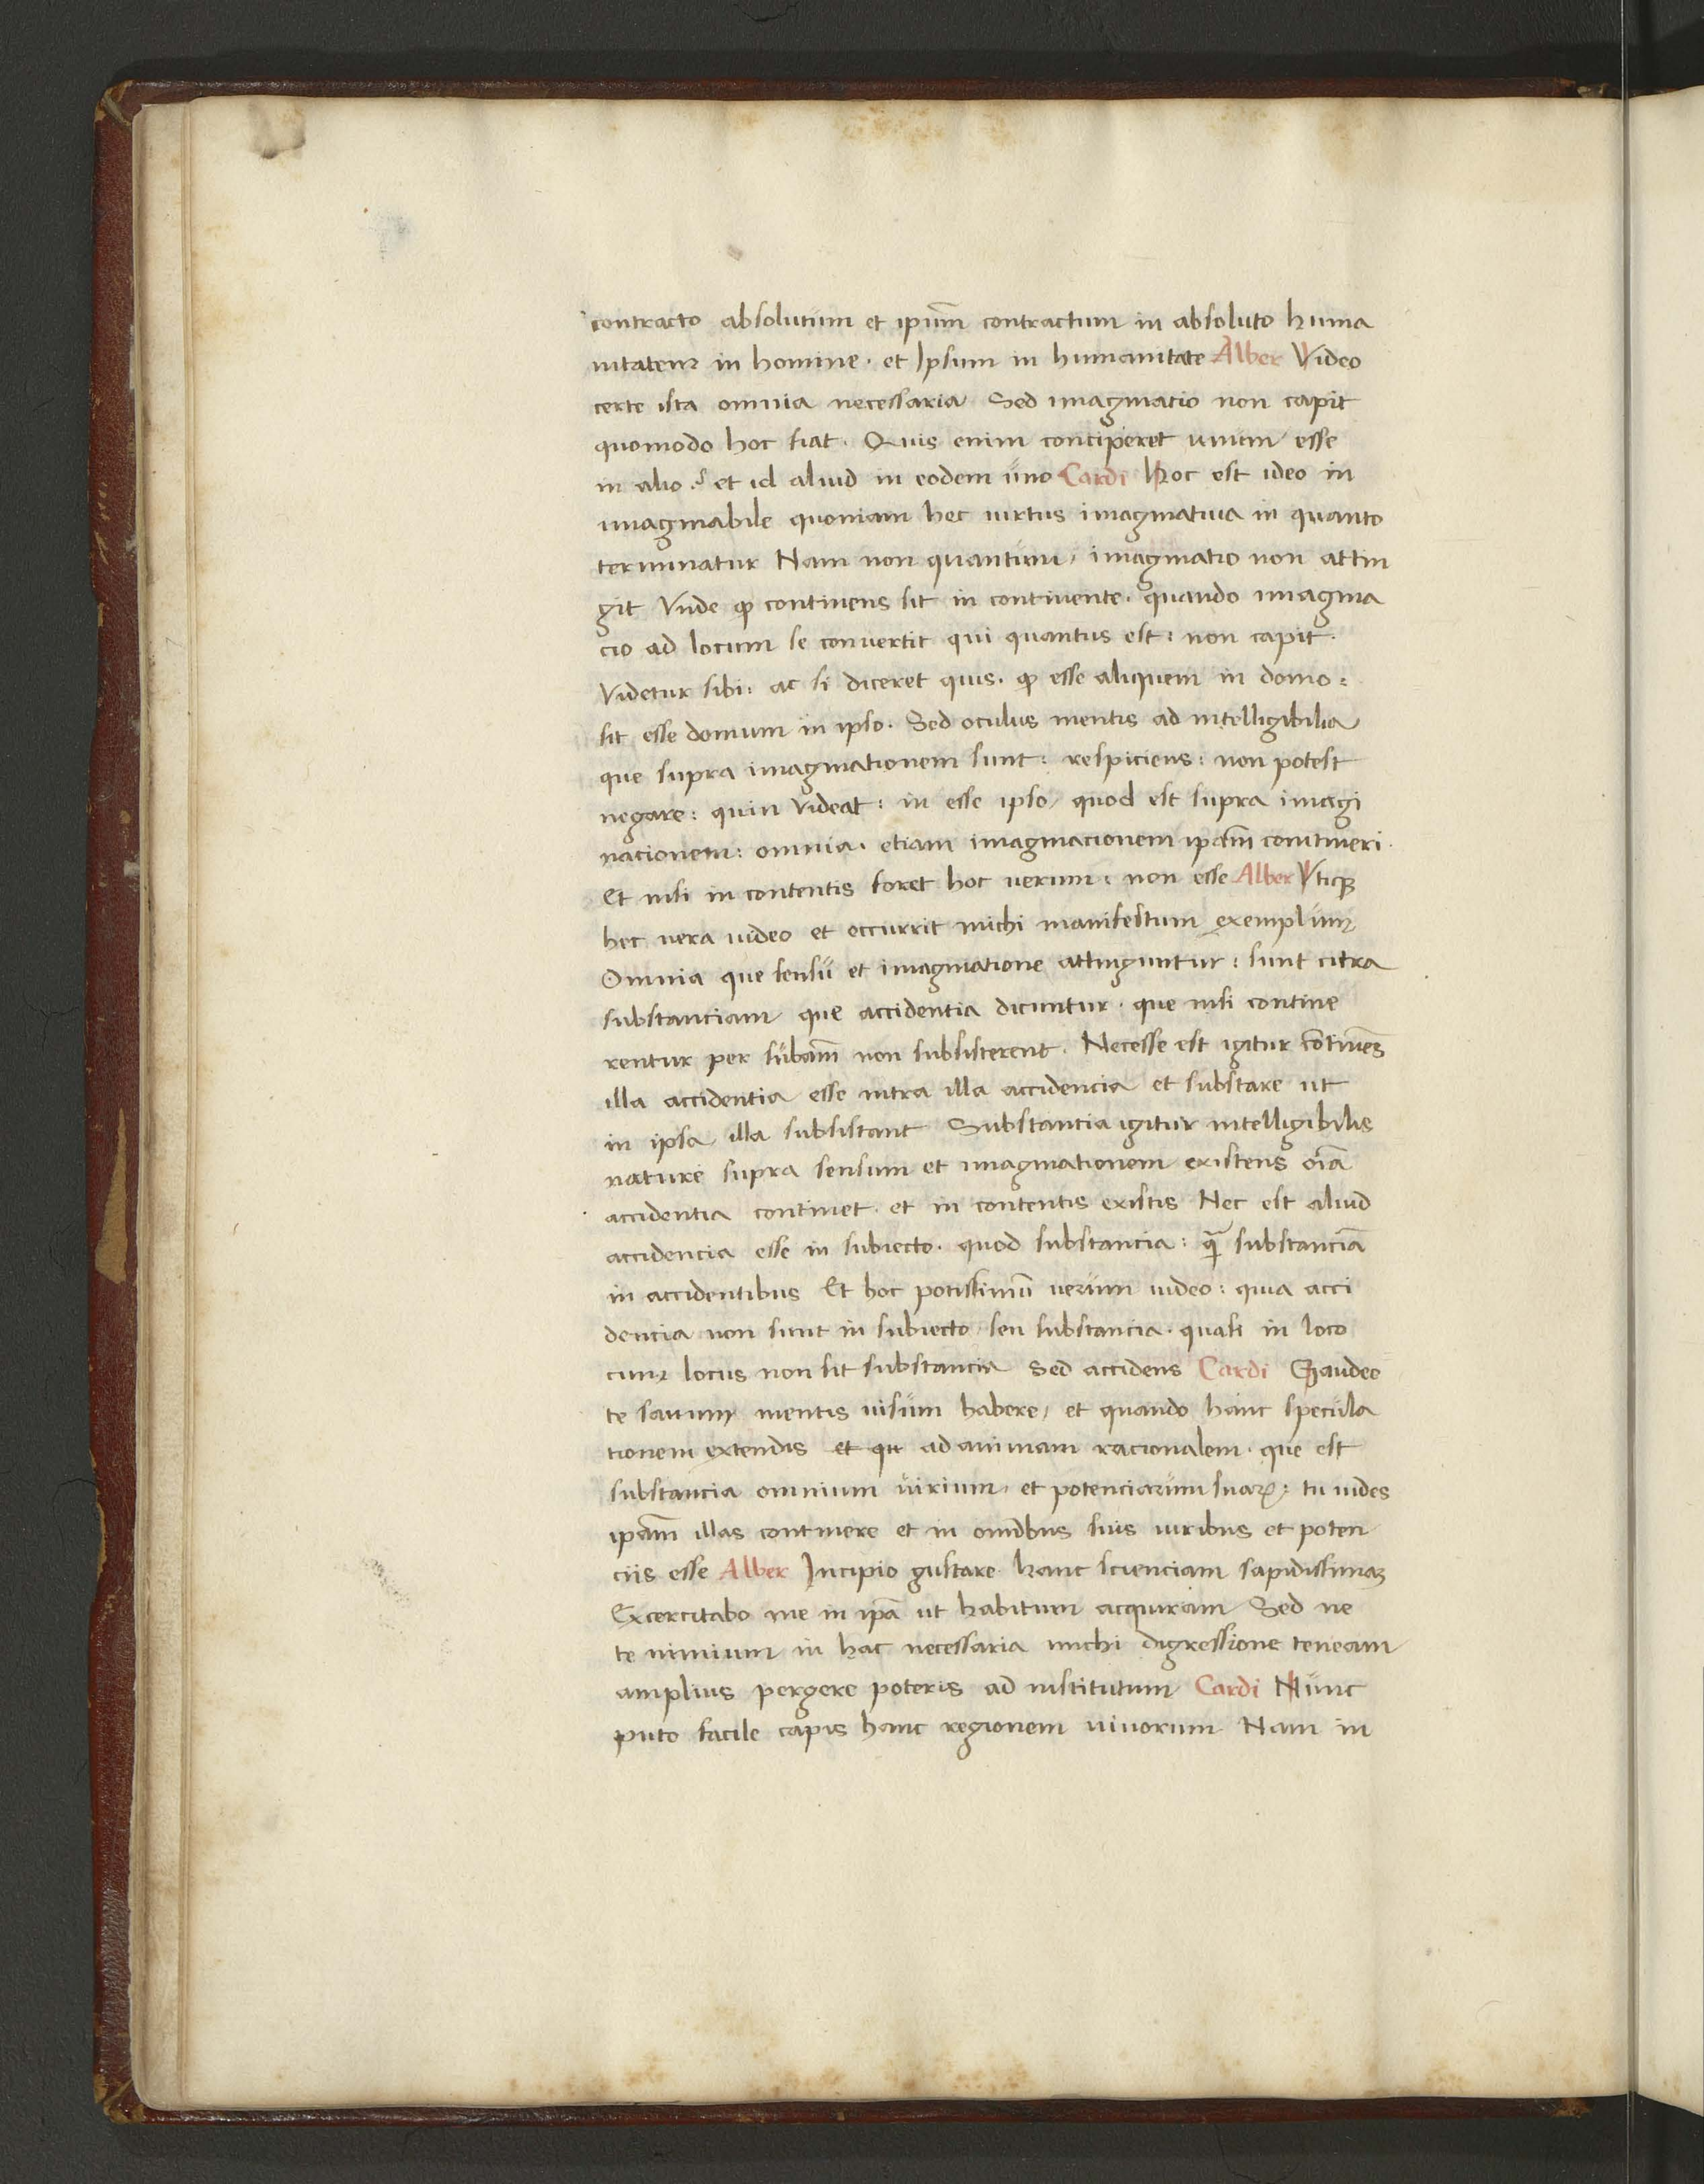 contracto absolutum et ipūm contractum in absoluto huma
nitatem in homine · et Ipsum in humanitate Alber Video
certe ista omnia necessaria Sed imaginatio non capit
quomodo hoc fiat · Quis enim conciperet unum esse
in alio ·? et id aliud in eodem uno Cardi Hoc est ideo in
imaginabile quoniam hec uirtus imaginatiua in quanto
terminatur Nam non quantum / imaginatio non attin
git Vnde ꝙ continens sit in continente · quando imagina
cio ad locum se conuertit qui quantus est : non capit ·
Videtur sibi : ac si diceret quis · ꝙ esse aliquem in domo :
sit esse domum in ipso · Sed oculus mentis ad intelligibilia
que supra imaginationem sunt : respiciens : non potest
negare : quin Videat : in esse ipso / quod est supra imagi
nacionem : omnia · etiam imaginacionem ip̄am contineri ·
Et nisi in contentis foret hoc uerum : non esse Alber Vtiqꝫ
hec uera uideo et occurrit michi manifestum exemplum
Omnia que sensu et imaginatione attinguntur : sunt citra
substanciam que accidentia dicuntur · que nisi contine
rentur per subām non subsisterent · Necesse est igitur cōtinēs
illa accidentia esse intra illa accidencia et substare ut
in ipsa illa subsistant Substantia igitur intelligibilis
nature supra sensum et imaginationem existens oīa
accidentia continet · et in contentis existis Nec est aliud
accidencia esse in subiecto · quod substancia : qᷓ substanciā
in accidentibus Et hoc potissimū uerum uideo : quia acci
dencia non sunt in subiecto seu substancia · quasi in loco
cum locus non sit substantia Sed accidens Cardi Gaudeo
te sanum mentis uisum habere / et quando hanc specula
tionem extendis et qu ad animam racionalem · que est
substancia omnium uirium / et potenciarum suaꝝ : tu uides
ip̄am illas continere et in omībus suis uiribus et poten
ciis esse Alber Incipio gustare hanc scienciam sapidissimaꝫ
Excercitabo me in ip̄a ut habitum acquiram Sed ne
te nimium in hac necessaria michi digressione teneam
amplius pergere poteris ad institutum Cardi Nunc
puto facile capis hanc regionem uiuorum Nam in